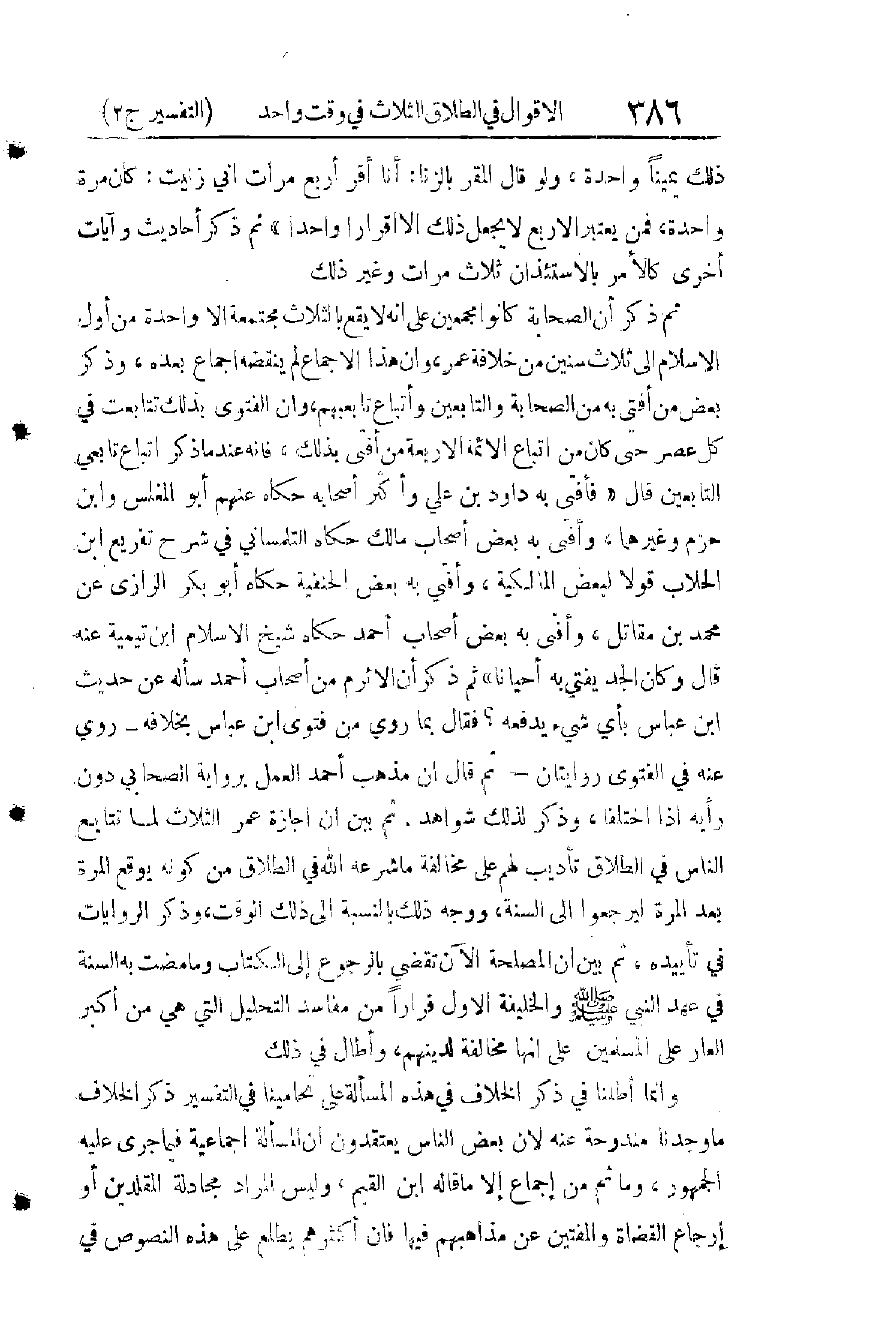 ٣٨٦ الاقوال في الطلاق الثلاث في وقت واحد (التفسير ج٢)
ذلك يميناً واحدة ، ولو قال المقر بالزنا: أنا أقر أربع مرات اني زنيت : كان مرة
واحدة، فمن يعتبر الاربع لايجعل ذلك الااقرارا واحدا » ثم ذكر أحاديث وآيات
أخرى كالأمر بالاستئذان ثلاث مرات وغير ذلك
ثم ذكر أن الصحابة كانوا مجمعين على انه لا يقع بالثلاث مجتمعة الا واحدة من أول
الاسلام الى ثلاث سنين من خلافة عمر، وان هذا الاجماع لم ينقضه اجماع بعده ، وذكر
بعض من أفتى به من الصحابة والتابعين وأتباع تابعيهم، وان الفتوى بذلك تتابعت في
كل عصر حتى كان من اتباع الائمة الاربعة من أفتى بذلك ، فانه عندما ذكر اتباع تابعي
التابعين قال « فأفتى به داود بن علي وأكثر أصحابه حكاه عنهم أبو المغلس وابن
حزم وغيرهما ، وأفتى به بعض أصحاب مالك حكاه التلمساني في شرح تفريع ابن
الحلاب قولا لبعض المالكية ، وأفتى به بعض الحنفية حكاه أبو بكر الرازي عن
محمد بن مقاتل ، وأفتى به بعض أصحاب أحمد حكاه شيخ الاسلام ابن تيمية عنه
قال وكان الجد يفتي به أحيانا» ثم ذكر أن الاثرم من أصحاب أحمد سأله عن حديث
ابن عباس بأي شيء يدفعه ؟ فقال بما روي من فتوى ابن عباس بخلافه ـ روي
عنه في الفتوى روايتان – ثم قال ان مذهب أحمد العمل برواية الصحابي دون
رأيه اذا اختلفا ، وذكر لذلك شواهد . ثم بين ان اجازة عمر الثلاث لما تتابع
الناس في الطلاق تأديب لهم على مخالفة ماشرعه الله في الطلاق من كونه يوقع المرة
بعد المرة ليرجعوا الى السنة، ووجه ذلك بالنسبة الى ذلك الوقت، وذكر الروايات
في تأييده ، ثم بين ان المصلحة الآن تقضي بالرجوع إلى الكتاب ومامضت به السنة
في عهد النبي ﷺ والخليفة الاول فراراً من مفاسد التحليل التي هي من أكبر
العار على المسلمين على انها مخالفة لدينهم، وأطال في ذلك
وانما أطلنا في ذكر الخلاف في هذه المسألة على تحامينا في التفسير ذكر الخلاف
ماوجدنا مندوحة عنه لان بعض الناس يعتقدون ان المسألة اجماعية فيما جرى عليه
الجمهور ، وما ثم من إجماع إلا ماقاله ابن القيم ، وليس المراد مجادلة المقلدين أو
إرجاع القضاة والمفتين عن مذاهبهم فيها فان أكثرهم يطلع على هذه النصوص في